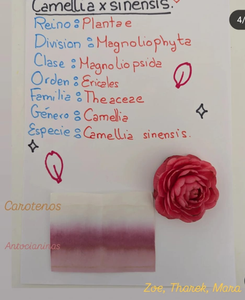 Camellia x sinensis.
Reino: Plantae
Division: Magnoliophyta
Clase: Magnoliopsida
Orden: Ericales
Familia: Theaceae
Género: Camellia
Especie: Camellia sinensis.
Carotenos
Antocianinas
Zoe, Tharek, Mara
4/